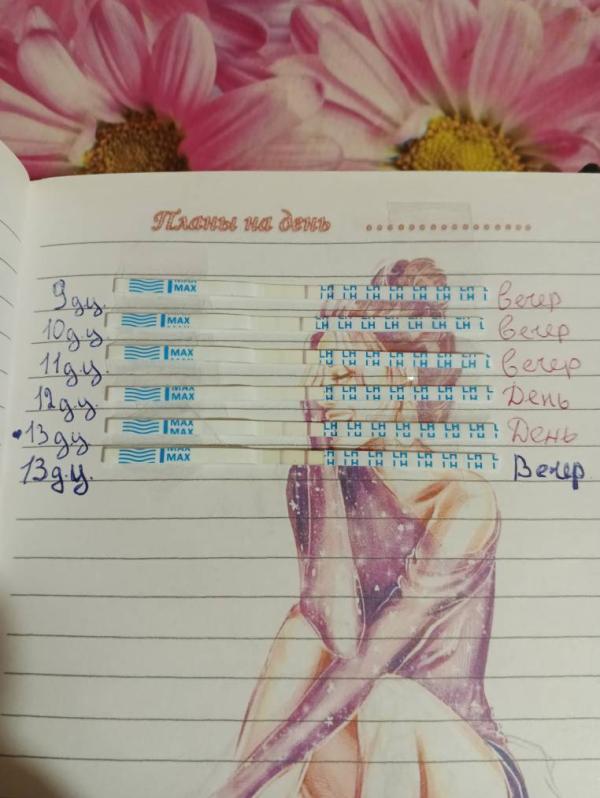 Планы на день
9 д.ц. MAX MAX LH LH LH LH LH LH LH L вечер
10 д.ц MAX LH LH LH LH LH LH LH L вечер
11 д.ц. MAX LH LH LH LH LH LH LH L вечер
12 д.ц. MAX MAX LH LH LH LH LH LH LH L День
13 д.ц MAX MAX LH LH LH LH LH LH LH L День
13 д.ц. MAX LH LH LH LH LH LH LH L Вечер